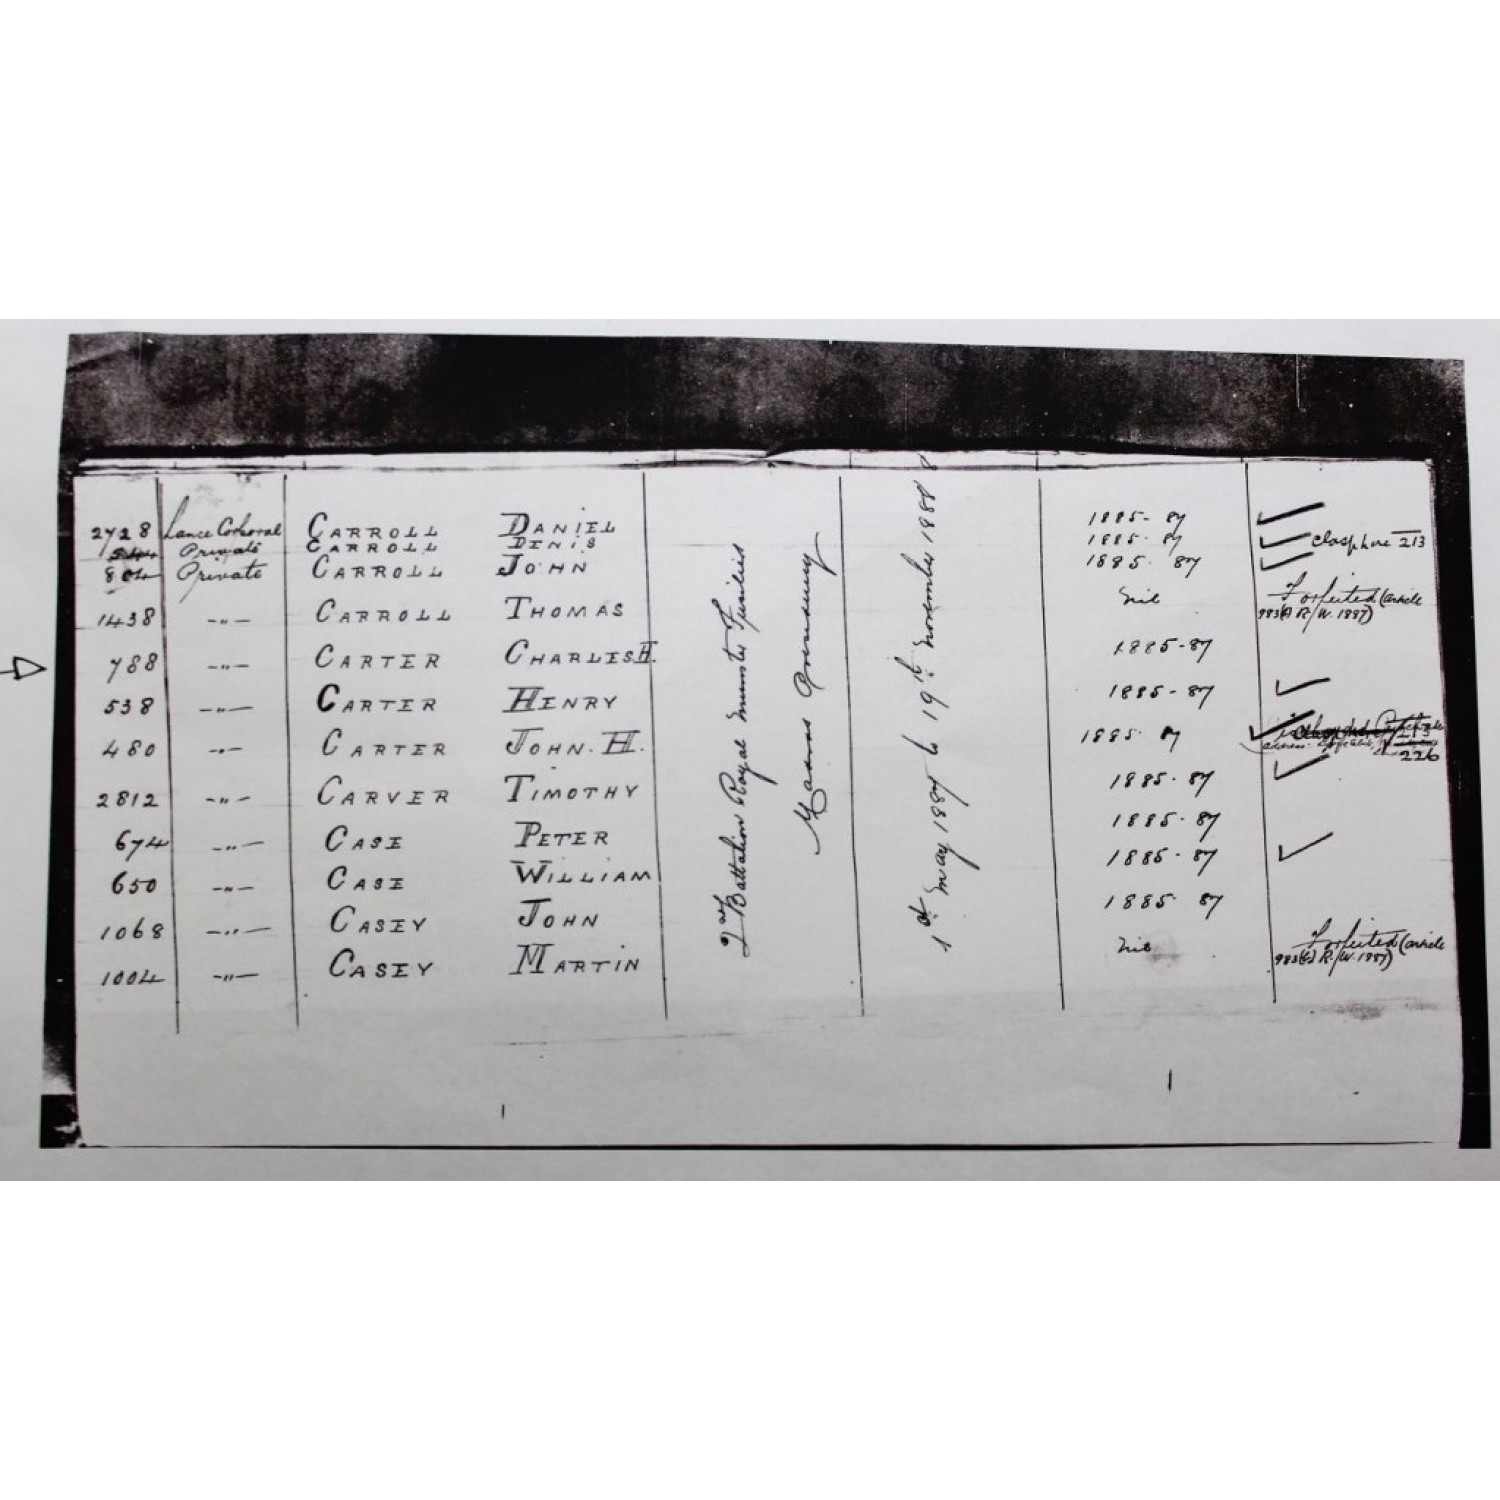 2728 Lance Corporal CARROLL DANIEL 1885-87 ✓
Private CARROLL DENIS 1885-87 ✓ 213
804 Private CARROLL JOHN 1885-87 ✓
1438 -"- CARROLL THOMAS nil Forfeited (article
983(A) R/W. 1887)
788 -"- CARTER CHARLES H. 1885-87
538 -"- CARTER HENRY 1885-87 ✓
480 -"- CARTER JOHN. H. 1885-87 ✓
226
2812 -"- CARVER TIMOTHY 1885-87 ✓
674 -"- CASE PETER 1885-87
650 -"- CASE WILLIAM 1885-87 ✓
1068 -"- CASEY JOHN 1885-87
1004 -"- CASEY MARTIN nil Forfeited (article
R/W. 1887)
2nd Battalion Royal Munster Fusiliers
Madras Presidency
1st May 1887 to 19th November 1888